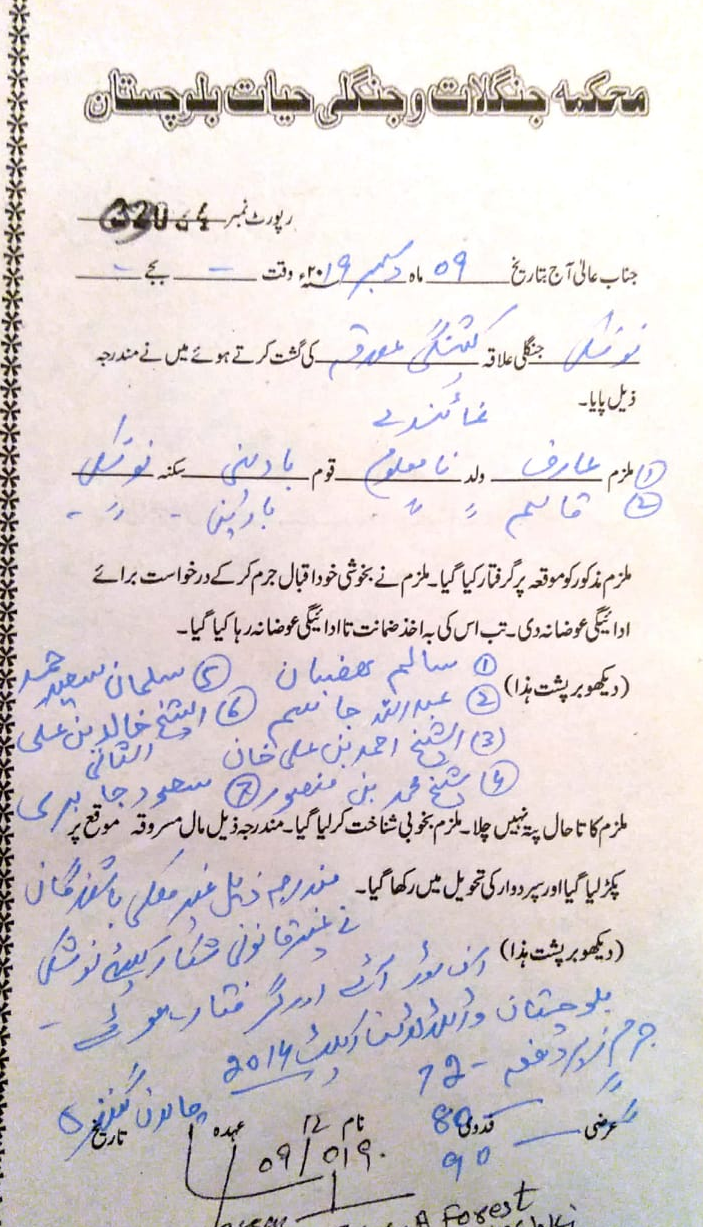 محکمہ جنگلات و جنگلی حیات بلوچستان
رپورٹ نمبر
جناب عالیٰ آج بتاریخ 09 ماہ دسمبر ۲۰19ء وقت - بجے -
نوشکی جنگلی علاقہ کی گشت کرتے ہوئے میں نے مندرجہ
ذیل پایا۔
نمائندے
① ملزم عارف ولد نامعلوم قوم بادینی سکنہ نوشکی
② قاسم 〃 〃 بادینی - 〃 -
ملزم مذکور کو موقعہ پر گرفتار کیا گیا۔ ملزم نے بخوشی خود اقبال جرم کر کے درخواست برائے
ادائیگی عوضانہ دی۔ تب اس کی بہ اخذ ضمانت تا ادائیگی عوضانہ رہا کیا گیا۔
(دیکھو بر پشت ہذا) ① سالم ⑤ سلمان سعید حمد
② عبداللہ جاسم ⑥ الشیخ خالد بن علی
③ الشیخ احمد بن علی خان الثانی
④ شیخ محمد بن منصور ⑦ سعود جابری
ملزم کا تا حال پتہ نہیں چلا۔ ملزم بخوبی شناخت کر لیا گیا۔ مندرجہ ذیل مال مسروقہ موقع پر
پکڑ لیا گیا اور سپردوار کی تحویل میں رکھا گیا۔ مندرجہ ذیل غیر ملکی باشندگان
(دیکھو بر پشت ہذا) نے غیر قانونی شکار کیلئے نوشکی
آئے اور گرفتار ہوئے -
بلوچستان وائلڈ لائف ایکٹ 2014
جرم زیر دفعہ - 72
عرضی فدوی 80 نام عہدہ تاریخ
90
12
09/ 019
A Forest